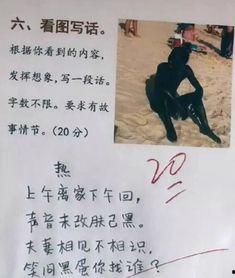 六、看图写话。
根据你看到的内容,
发挥想象,写一段话。
字数不限。要求有故
事情节。(20分)
20
热
上午离家下午回,
声音未改肤已黑。
夫妻相见不相识,
笑问黑蛋你找谁?